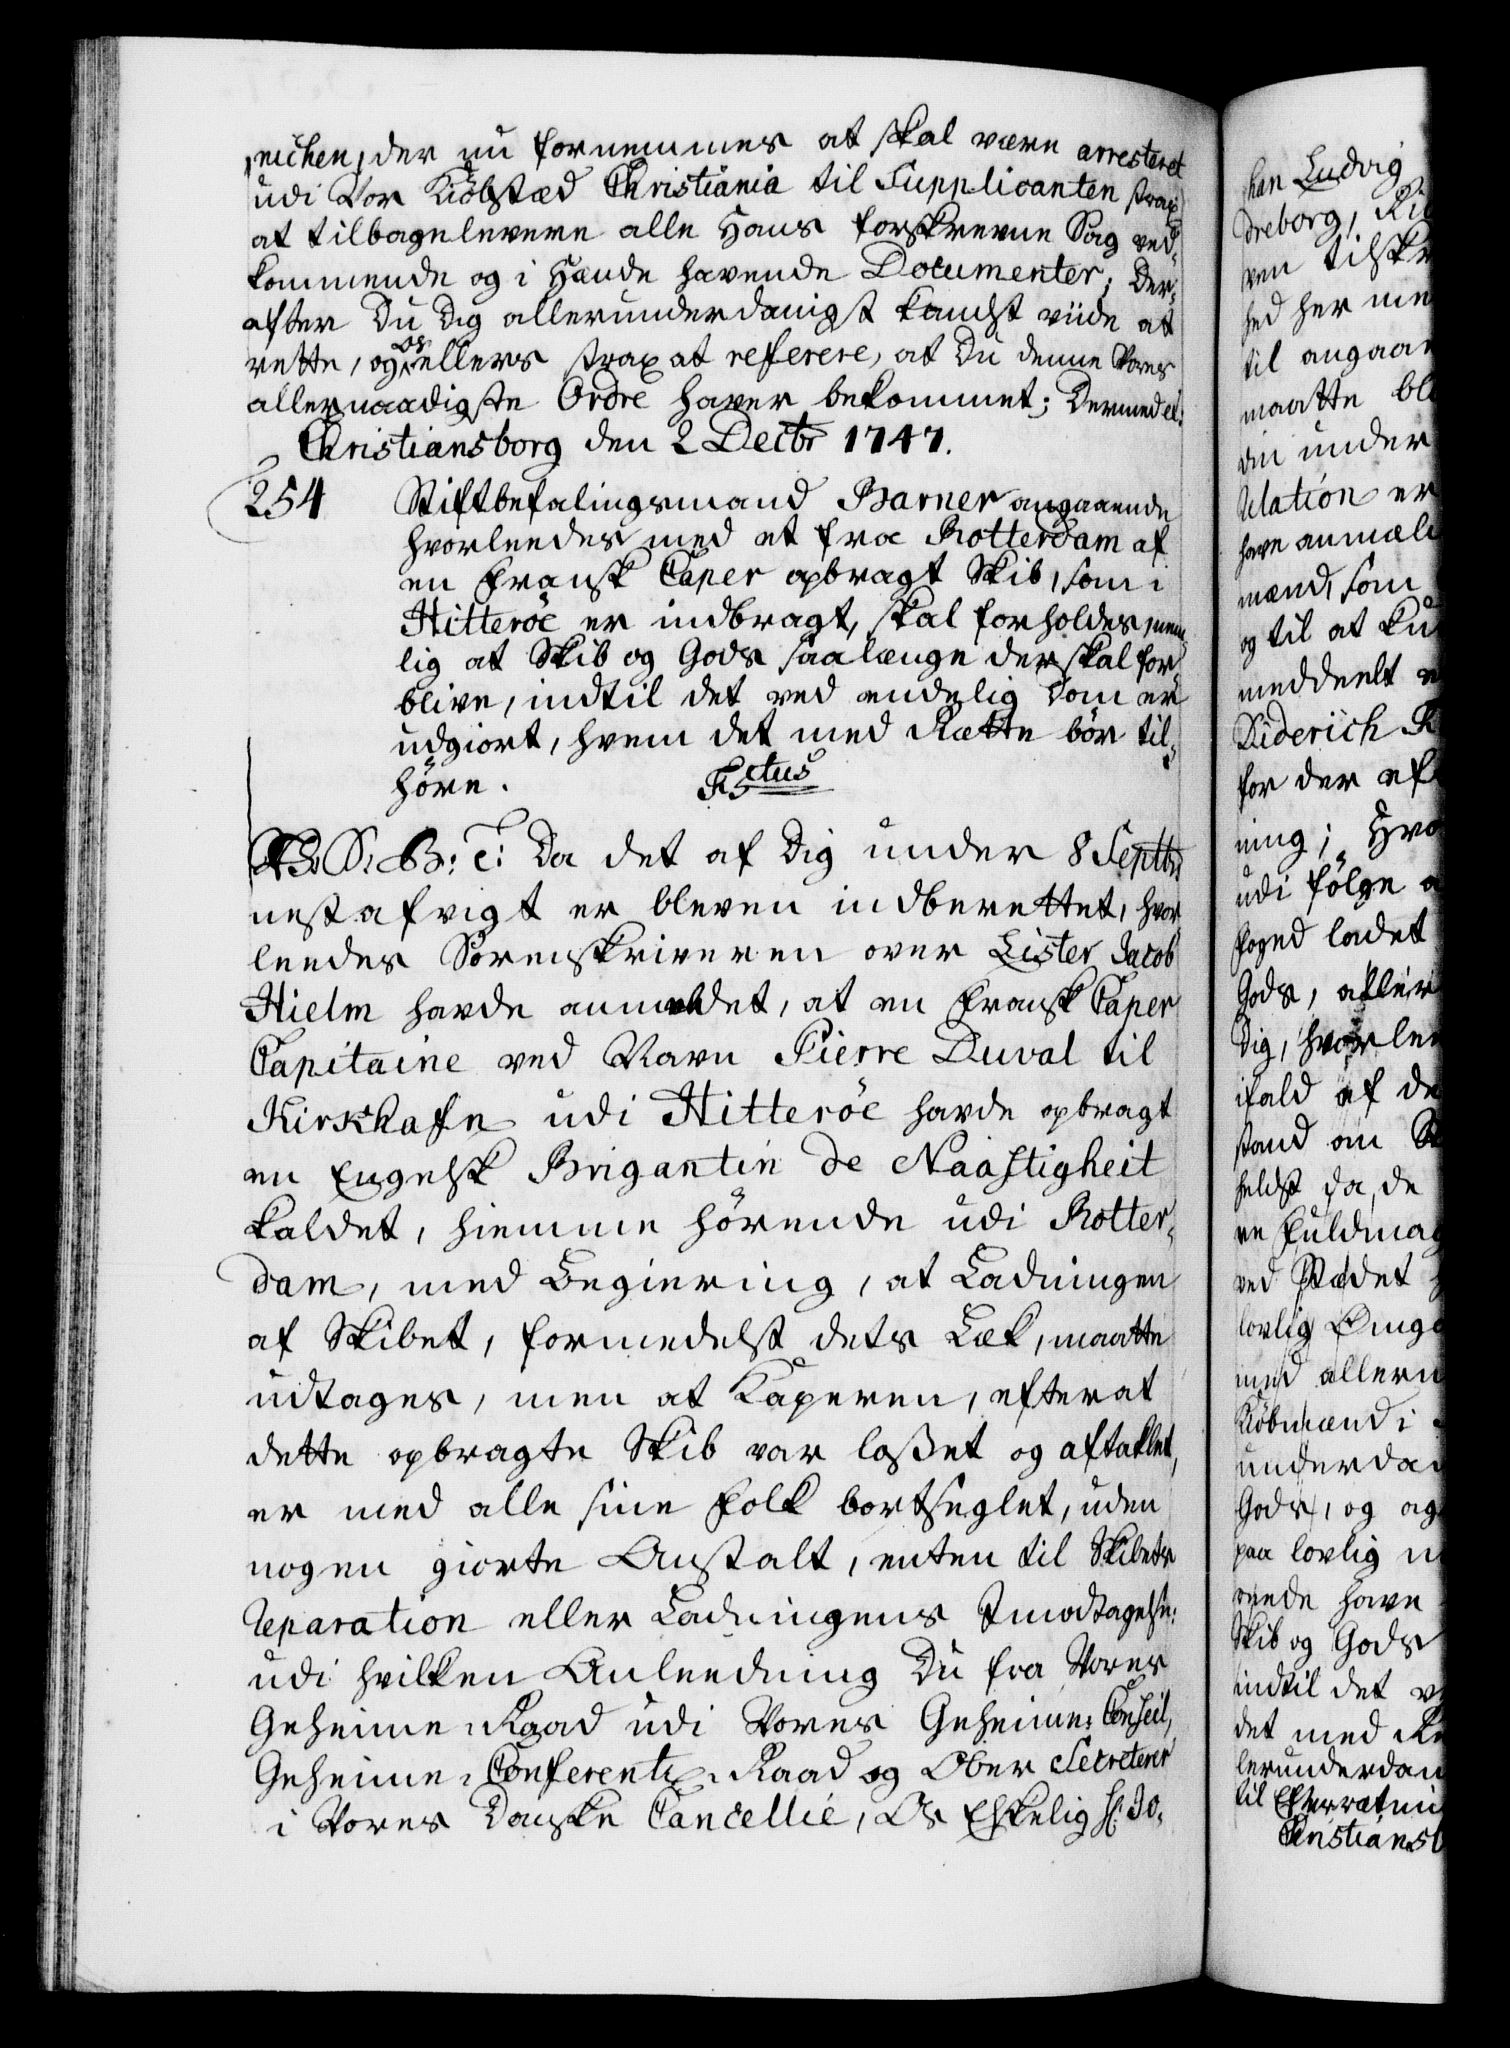 michen, der nu fornemmes at skal være arresteret
udi Vor Kiöbstæd Christiania til Supplicanten strax
at tilbagelevere alle Hans forskrevne Sag ved-
kommende og i Hænde havende Documenter; Der-
efter Du Dig allerunderdanigst kandst viide at
rette, og Os ellers strax at referere, at Du denne Vores
allernaadigste Ordre haver bekommet; Dermed et:
Christiansborg den 2 Decbr 1747.
254 Stiftbefalingsmand Barner angaaende
hvorleedes med et fra Rotterdam af
en Fransk Caper opbragt Skib, som i
Hitteröe er indbragt, skal forholdes nem-
lig at Skib og Gods saalænge der skal for-
blive, indtil det ved endelig Dom er
udgiort, hvem det med Rætte bör til-
höre.
Da det af Dig under 8 Septbr
nestafvigt er bleven indberettet, hvor-
leedes Sorenskriveren over Lister Jacob
Hielm havde anmeldet, at en Fransk Caper
Capitaine ved Navn Pierre Duval til
Kirkhafn udi Hitteröe havde opbragt
en Engelsk Brigantin de Naastigheit
kaldet, hiemme hörende udi Rotter-
dam, med Begiering, at Ladningen
af Skibet, formedelst dets Læk, maatte
udtages, men at Kaperen, efter at
dette opbragte Skib var losset og aftaklet,
er med alle sine Folk bortseglet, uden
nogen giorte Anstalt, enten til Skibets
Reparation eller Ladningens Imodtagelse:
udi hvilken Anleedning Du fra Vores
Geheime-Raad udi Vores Geheime-Conseil,
Geheime-Conferentz-Raad og Ober Secreterer
i Vores Danske Cancellie, Os Elskelig Hr. Jo-
han Ludvig
dreborg, Ri
ven tilskr
hed her me
til angaae
maatte bl
din under
Relation er
have anmel
mænd, som
og til at ku
meddeelt
Diderich K
for der ef
ning; Hvo
udi fölge a
Foged ladet
Gods, aller
Dig, hvorlee
ifald af de
stand om
heldst da, de
re Fuldmæg
ved Stædet
lovlig Omga
med allern
Kiöbmænd i
underdan
Gods, og ag
paa lovlig
rende have
Skib og Gods
indtil det v
det med Ræ
lerunderdan
til Efterretni
Christiansb